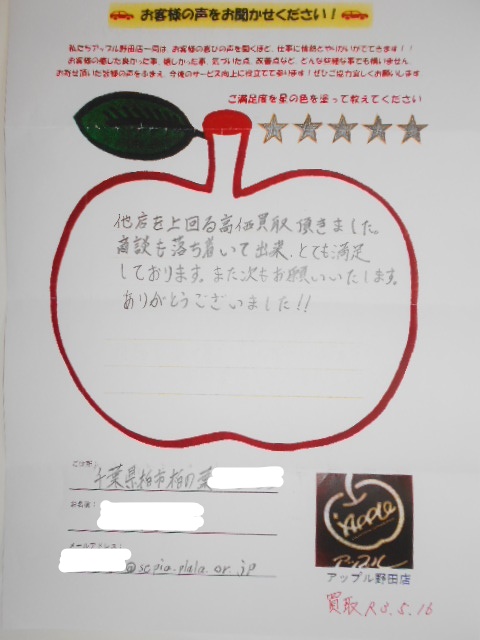 お客様の声をお聞かせください!
私たちアップル野田店一同は、お客様の喜びの声を聞くほど、仕事に情熱とやりがいがでてきます!!
お客様の感じた良かった事、嬉しかった事、気づいた点、改善点など、どんな些細な事でも構いません。
お寄せ頂いた皆様の声をふまえ、今後のサービス向上に役立てて参ります!ぜひご協力宜しくお願いします
ご満足度を星の色を塗って教えてください
他店を上回る高価買取頂きました。
商談も落ち着いて出来、とても満足
しております。また次もお願いいたします。
ありがとうございました!!
ご住所:
千葉県柏市柏の葉
お名前:
メールアドレス:
@scpia.plala.or.jp
Apple
アップル
アップル野田店
買取 R3.5.16